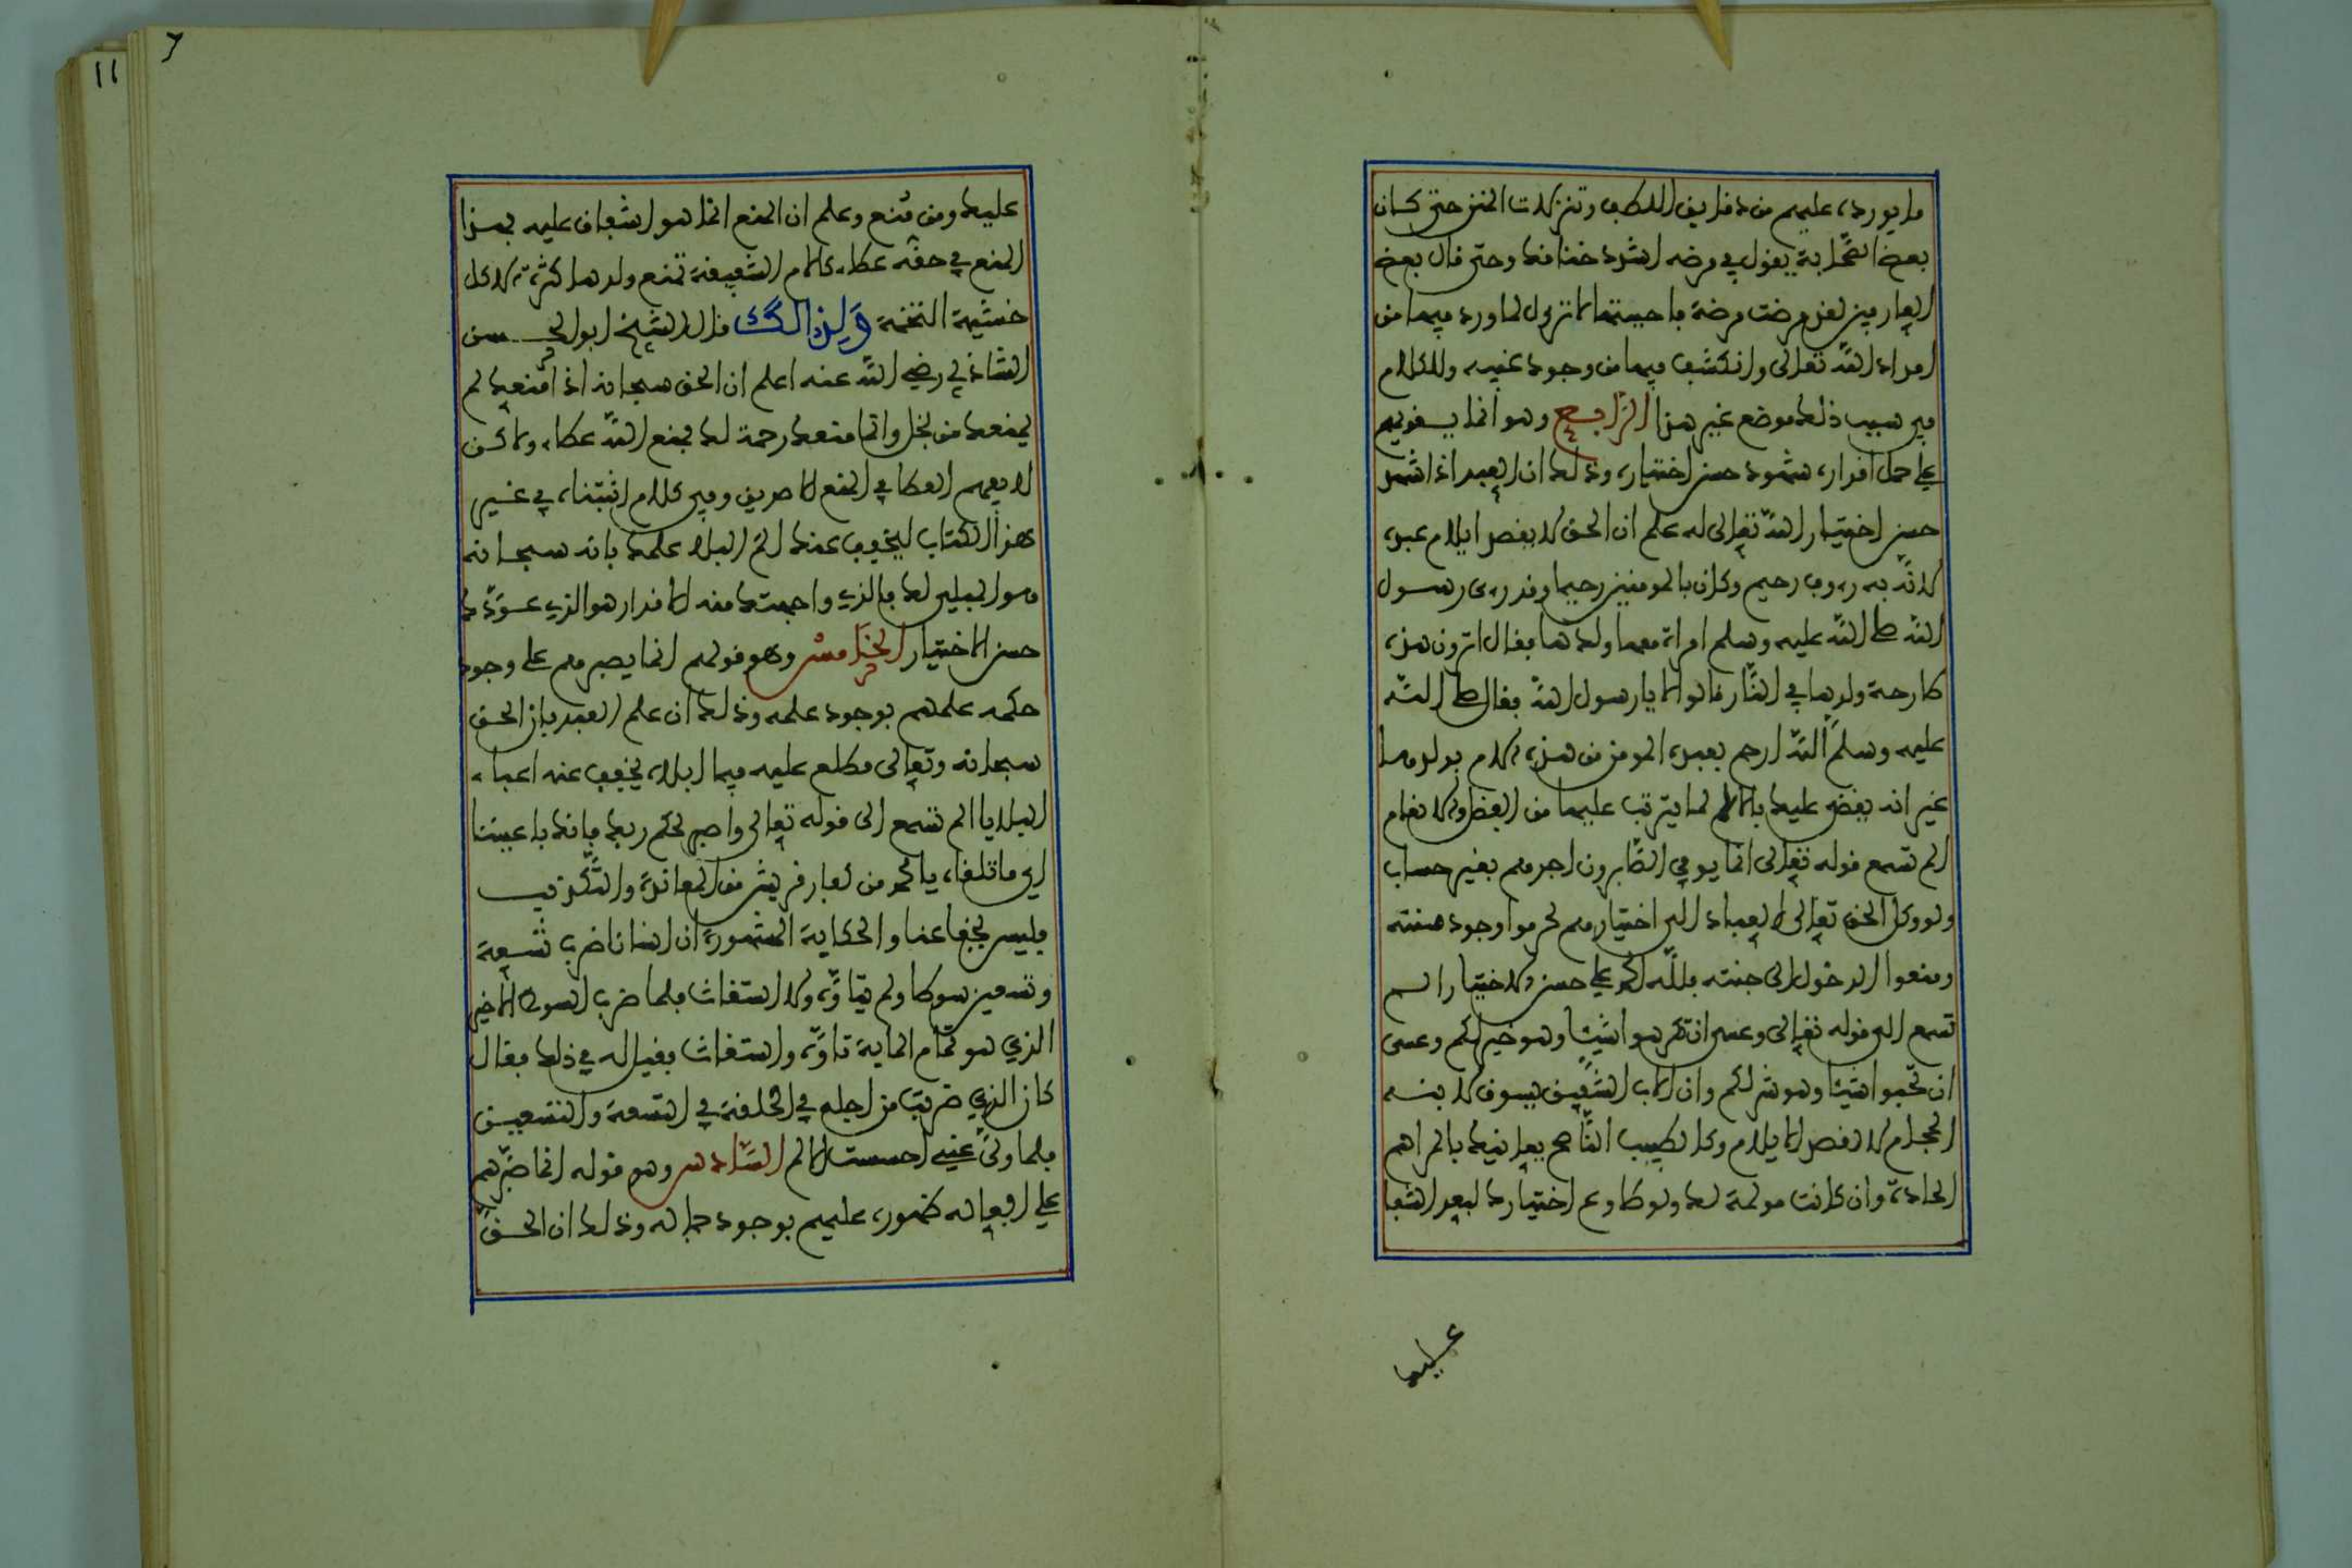 ما يورده عليهم من دقايق اللطف وتنزلات المنن حتى كان
بعض الصحابة يقول في مرضه اشدد خنافك وحتى قال بعض
العارفين لقد مرضت مرضة فاحببتها الا تزول لما ورد فيها من
امداد الله تعالى وانكشف فيها من وجود غيبه وللكلام
في سبب ذلك موضع غير هذا الرابع وهو انما يقويهم
على حمل اقداره شهود حسن اختياره وذلك ان العبد اذا شهد
حسن اختيار الله تعالى له علم ان الحق لا يقصد ايلام عبده
لانه به رءوف رحيم وكان بالمومنين رحيما وقد رءى رسول
الله صلى الله عليه وسلم امراة معها ولدها فقال اترون هذه
طارحة ولدها في النار قالوا لا يا رسول الله فقال صلى الله
عليه وسلم الله ارحم بعبده المومن من هذه الام بولدها
غير انه يقضي عليك بالالم لما يترتب عليها من الفضل والانعام
الم تسمع قوله تعالى انما يوفى الصابرون اجرهم بغير حساب
ولو وكل الحق تعالى العباد الى اختيارهم لحرموا وجود منته
ومنعوا الدخول الى جنته فلله الحمد على حسن الاختيار الم
تسمع الى قوله تعالى وعسى ان تكرهوا شيئا وهو خير لكم وعسى
ان تحبوا شيئا وهو شر لكم وان الاب الشفيق يسوق لابنه
الحجام لا لقصد الايلام وكالطبيب الناصح يعانيك بالمراهم
الحادة وان كانت مولمة لك ولو طاوع اختيارك لبعد الشفا
عليك
٦
١١
عليك ومن مُنع وعلم ان المنع انما هو اشفاق عليه فهذا
المنع في حقه عطاء كالام الشفيقة تمنع ولدها كثرة الاكل
خشية التخمة ولذالك قال الشيخ ابو الحسن
الشاذلي رضي الله عنه اعلم ان الحق سبحانه اذا منعك لم
يمنعك من بخل وانما منعك رحمة لك فمنع الله عطاء ولاكن
لا يفهم العطا في المنع الا صديق وفي كلام اثبتناه في غير
هذا الكتاب ليخفف عنك الم البلاء علمك بانه سبحانه
هو المبلي لك فالذي واجهتك منه الاقدار هو الذي عوّدك
حسن الاختيار الخامس وهو قولهم انما يصبرهم على وجود
حكمه علمهم بوجود علمه وذلك ان علم العبد بان الحق
سبحانه وتعالى مطلع عليه فيما ابلاه يخفف عنه اعباء
البلايا الم تسمع الى قوله تعالى واصبر لحكم ربك فانك باعيننا
اي ما تلقاه يا محمد من كفار قريش من المعاندة والتكذيب
فليس يخفا عنا والحكاية المشهورة ان انسانا ضرب تسعة
وتسعين سوطا ولم يتأوه ولا استغاث فلما ضرب السوط الاخير
الذي هو تمام الماية تأوه واستغاث فقيل له في ذلك فقال
كان الذي ضربت من اجله في الحلقة في التسعة والتسعين
فلما ولى عني احسست الالم السادس وهو قوله انما صبّرهم
على افعاله ظهوره عليهم بوجود جماله وذلك ان الحق